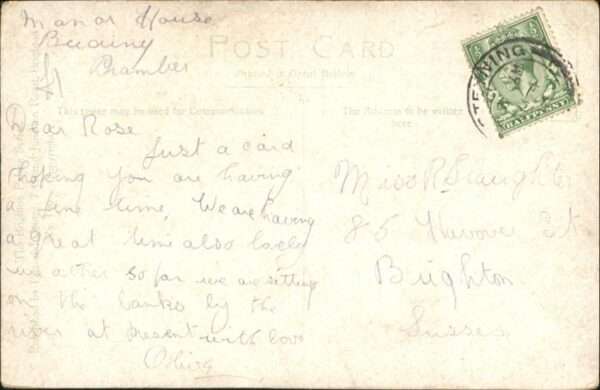 Manor House
Beeding
Bramber
POST CARD
Printed in Great Britain
This space may be used for Communication.
The Address to be written
here
STEYNING
HALFPENNY
Dear Rose
Just a card
hoping you are having
a fine time, We are having
a great time also lovely
weather so far we are sitting
on the banks by the
river at present with love
Miss R Slaughter
85 Hanover St
Brighton
Sussex